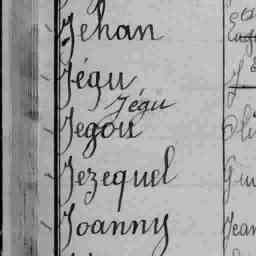 Jehan
Jégu
Jégu
Jegou
Jezequel
Joanny
Jean